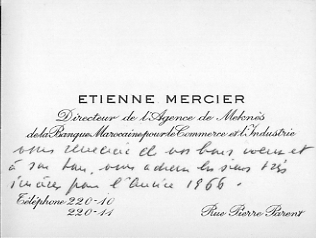 ETIENNE MERCIER
Directeur de l'Agence de Meknès
de la Banque Marocaine pour le Commerce et l'Industrie
vous remercie de vos bons voeux et
à son tour, vous adresse les siens très
sincères pour l'Année 1966.
Téléphone 220-10
220-11
Rue Pierre Parent